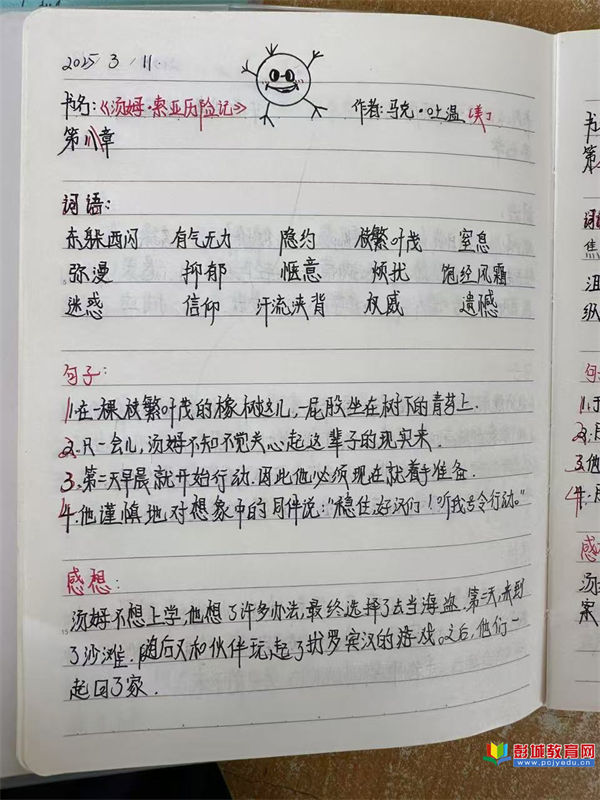 2025 3 / 11.
书名:《汤姆·索亚历险记》 作者:马克·吐温 (美)
第八章
词语:
东躲西闪 有气无力 隐约 枝繁叶茂 窒息
弥漫 抑郁 惬意 烦扰 饱经风霜
迷惑 信仰 汗流浃背 权威 遗憾
句子:
1.在一棵枝繁叶茂的橡树这儿,一屁股坐在树下的青苔上.
2.只一会儿,汤姆不知不觉关心起这辈子的现实来.
3.第二天早晨就开始行动.因此他必须现在就着手准备.
4.他谨慎地对想象中的同伴说:"稳住,好汉们!听我号令行动。"
感想:
汤姆不想上学,他想了许多办法,最终选择了去当海盗.第二天,来到
15
了沙滩.随后又和伙伴玩起了扮罗宾汉的游戏。之后,他们一
起回了家.
书
第
词
焦
沮
纵
句
1.
2.
3.他
4.
感
汤
案
彭城教育网
www.pcjyedu.cn